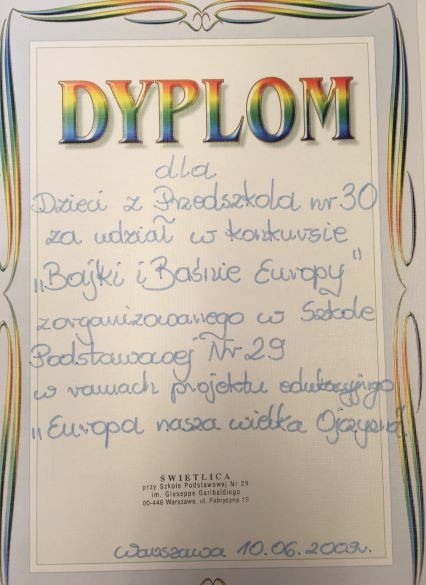 DYPLOM
dla
Dzieci z Przedszkola nr 30
za udział w konkursie
„Bajki i Baśnie Europy"
zorganizowanego w Szkole
Podstawowej Nr 29
w ramach projektu edukacyjnego
„Europa nasza wielka Ojczyzna"
ŚWIETLICA
przy Szkole Podstawowej Nr 29
im. Giuseppe Garibaldiego
00-446 Warszawa, ul. Fabryczna 19
Warszawa 10.06.2009r.